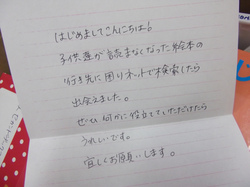 はじめましてこんにちは!
子供達が読まなくなった絵本の
行き先に困りネットで検索したら
出会えました。
ぜひ何かに役立てていただけたら
うれしいです。
宜しくお願いします。